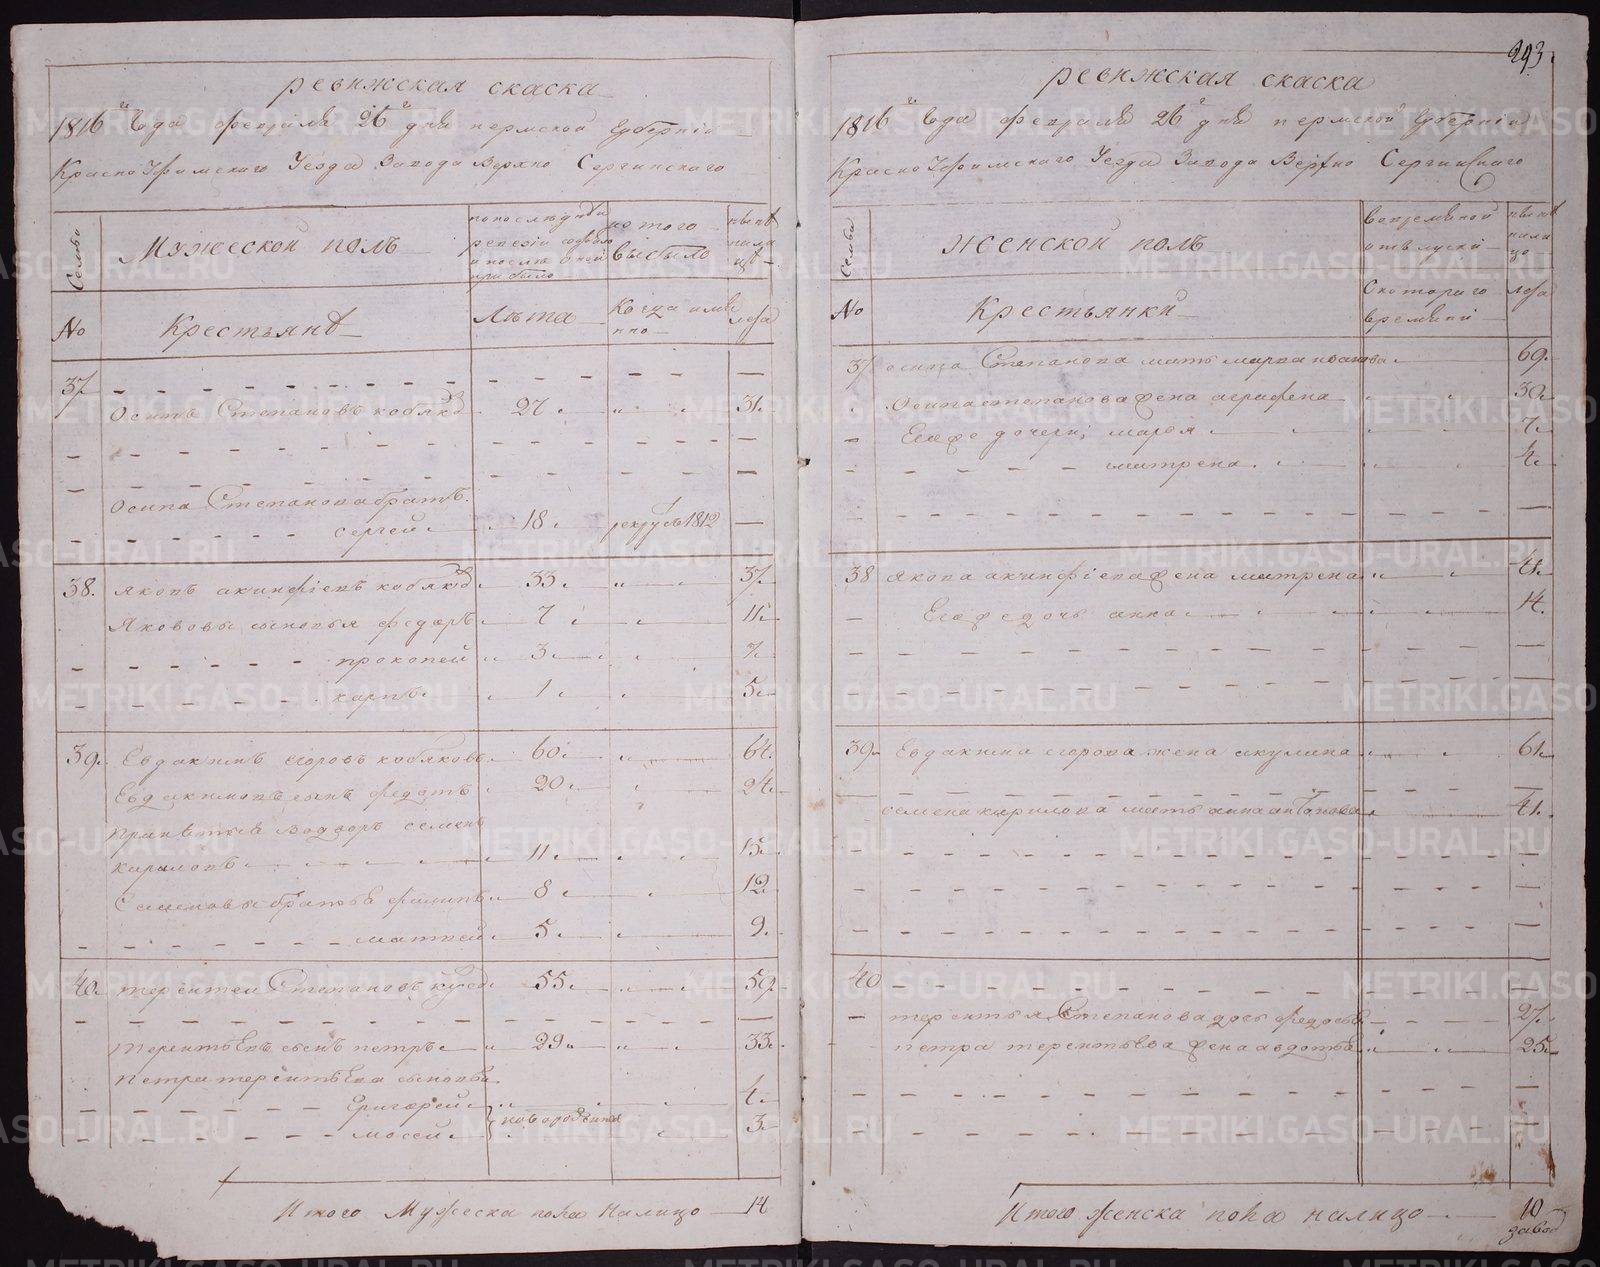 ревижская скаска
1816й Года февраля 26й дня пермской Губернiи
КрасноУфимскаго Уезда Завода Верхно Сергинскаго
Семьи
Мужеской полъ
по последней ревезiи состояло и после оной прибыло
ис того выбыло
ныне на лицо
No
Крестьяне
Лета
Когда имянно
лета
37
Осипъ Степановъ кобяко 27 31
Осипа Степанова братъ
сергей 18 рекрутъ 1812
38. Яковъ акинфiевъ кобяков 33 37
Якововы сыновья федоръ 7 11
прокопей 3 7
карпъ 1 5
39. Евдакимъ егоровъ кобяковъ 60 64
Евдакимовъ сынъ федотъ 20 24
Принетые в Водворъ семенъ
кириловъ 11 15
Семеновы братья филипъ 8 12
матвей 5 9
40. терентеи Степановъ 55 59
терентьевъ сынъ петръ 29 33
петра терентьева сыновья
Григорей 4
новороженные
мосей 3
Итого Мужеска пола Налицо 14
293
ревижская скаска
1816й Года февраля 26й дня пермской Губернiи
КрасноУфимскаго Уезда Завода Верхно Сергинскаго
Семьи
женской полъ
во времянной отлучке
ныне на лицо
No
Крестьянки
С котораго времяни
лета
37 осипа Степанова мать марфа иванова 69
Осипа степанова жена аграфена 30
Егоже дочери марья 7
матрена 4
38 якова акинфiева жена матрена 41
Егоже дочь анна 14
39 Евдакима егорова жена акулина 61
семена кирилова мать анна антонова 41
40
терентья Степанова дочь федосья 27
петра терентьева жена авдотья 25
Итого женска пола налицо 10
завод
METRIKI.GASO-URAL.RU